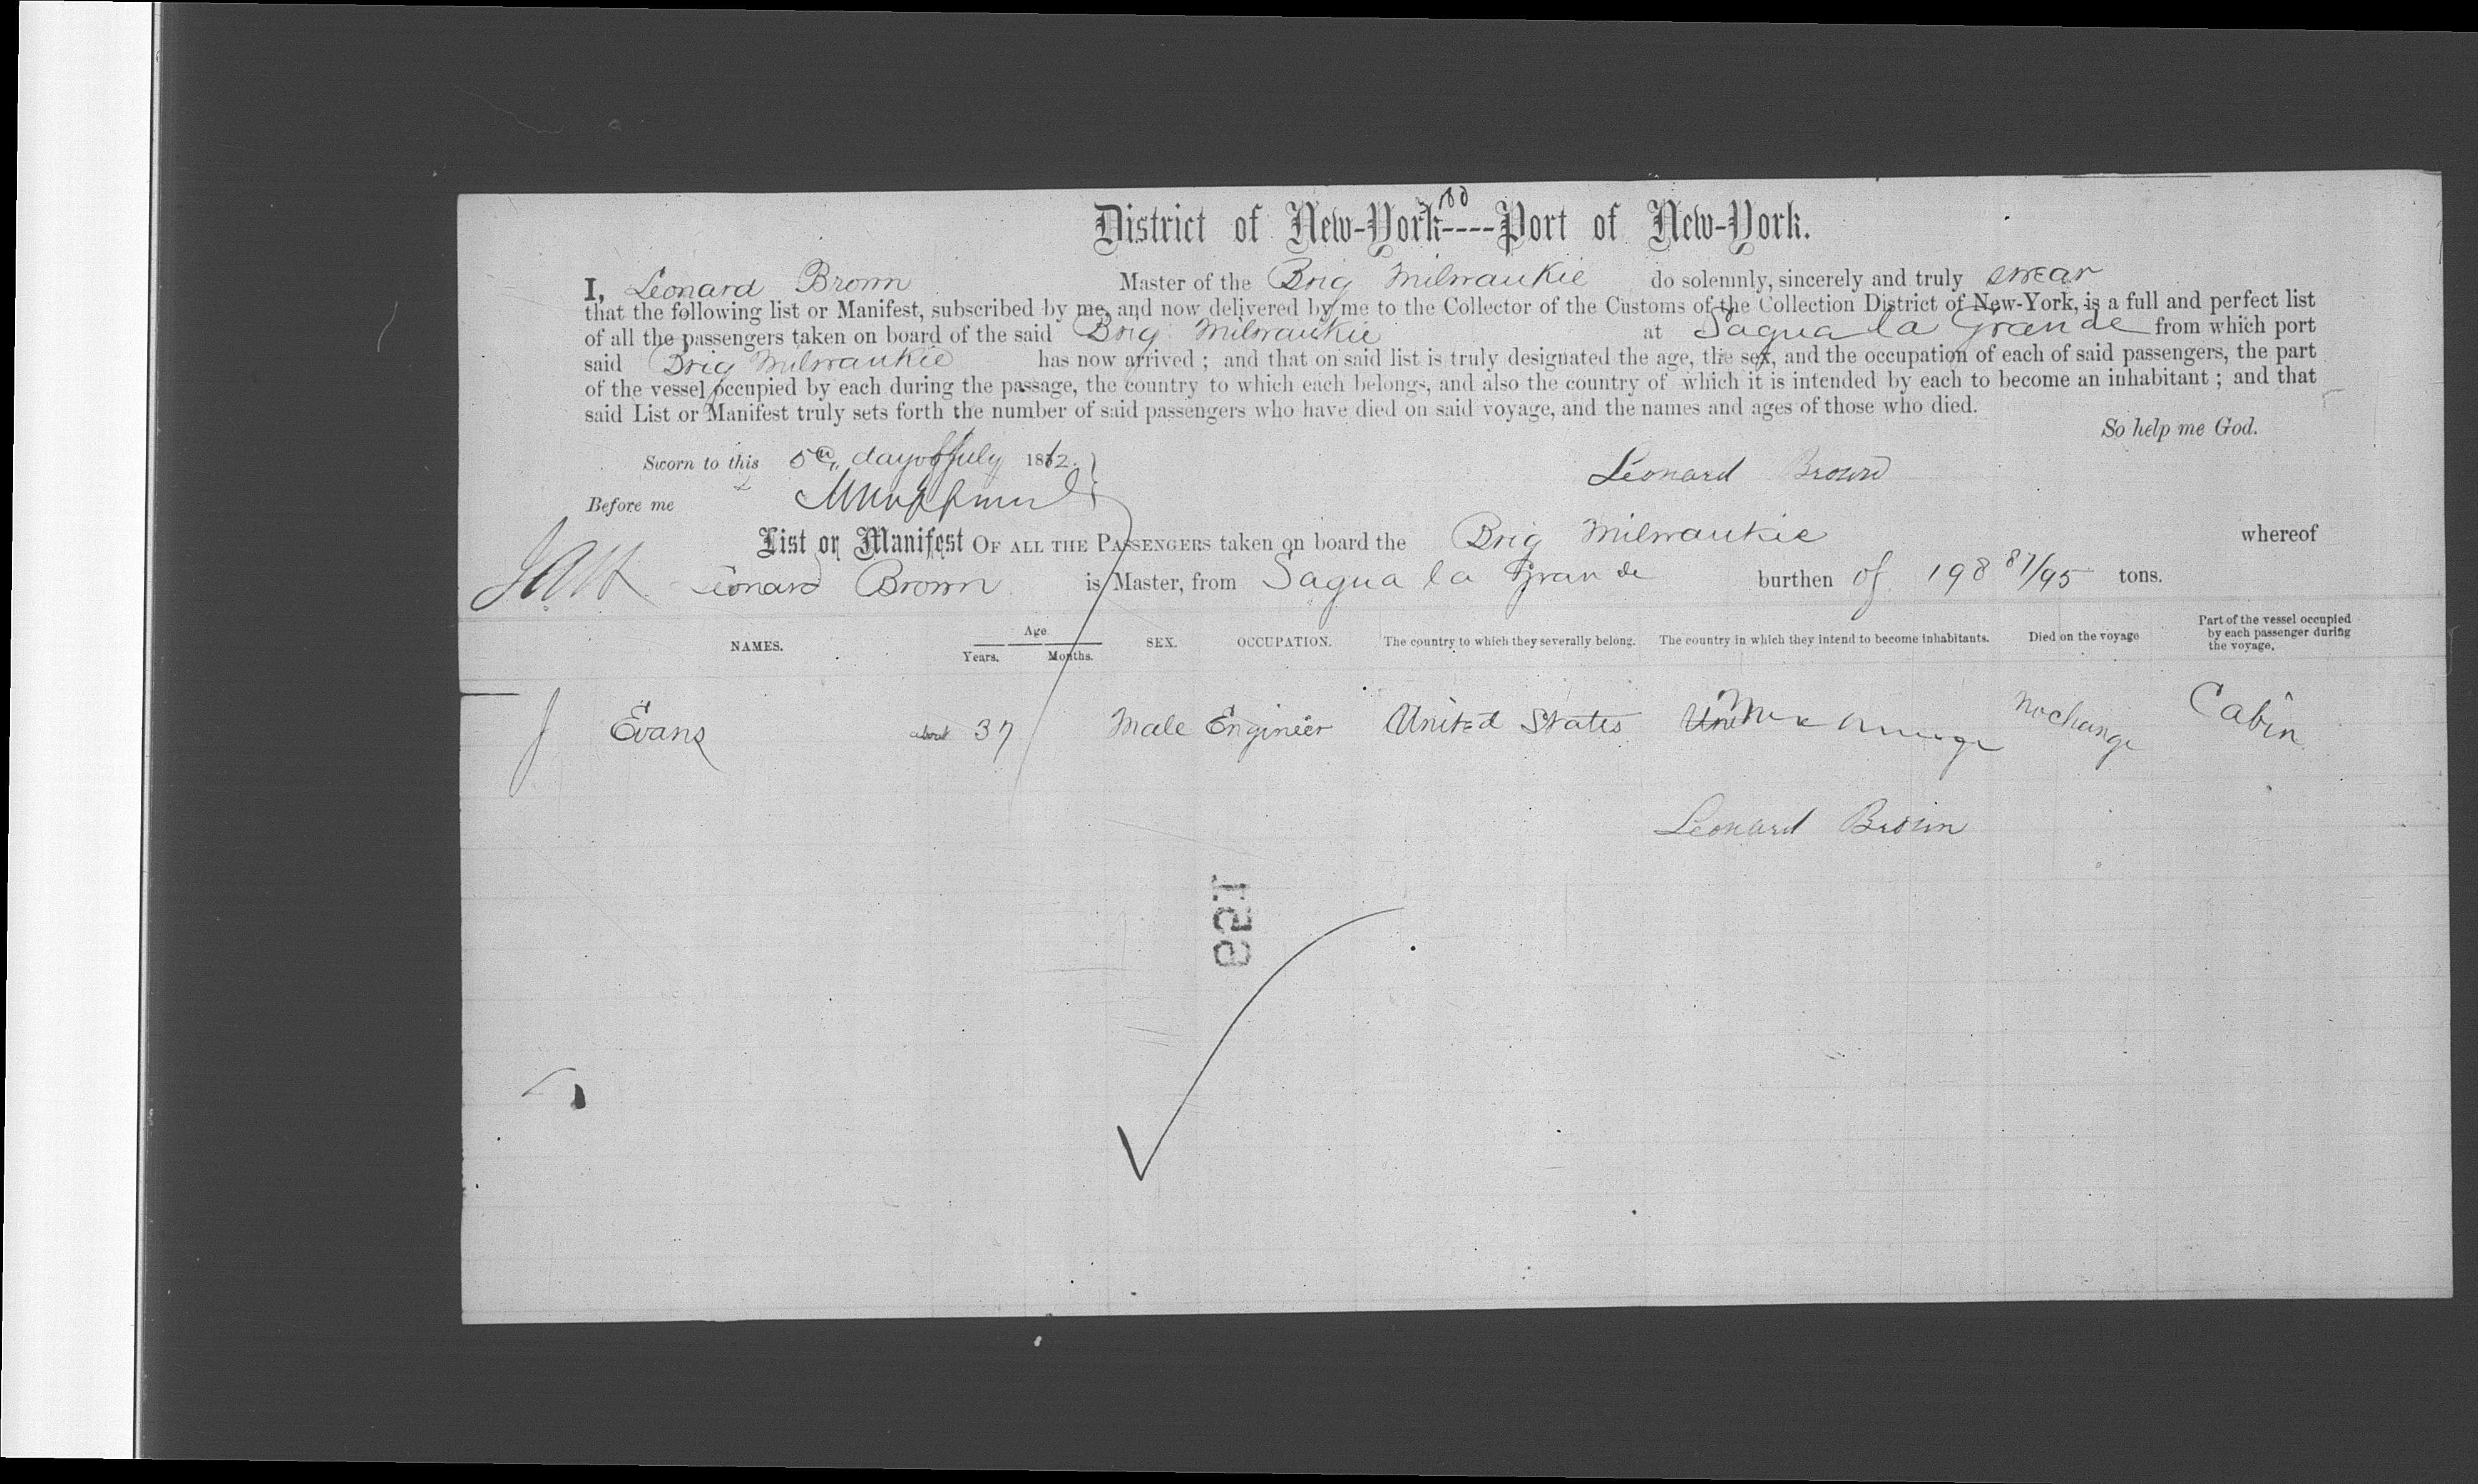 180
District of New-York----Port of New-York.
I, Leonard Brown Master of the Brig Milwaukie do solemnly, sincerely and truly swear
that the following list or Manifest, subscribed by me, and now delivered by me to the Collector of the Customs of the Collection District of New-York, is a full and perfect list
of all the passengers taken on board of the said Brig Milwaukie at Sagua la Grande from which port
said Brig Milwaukie has now arrived ; and that on said list is truly designated the age, the sex, and the occupation of each of said passengers, the part
of the vessel occupied by each during the passage, the country to which each belongs, and also the country of which it is intended by each to become an inhabitant ; and that
said List or Manifest truly sets forth the number of said passengers who have died on said voyage, and the names and ages of those who died.
So help me God.
Sworn to this 5th day of July 1862.
Leonard Brown
Before me
List or Manifest OF ALL THE PASSENGERS taken on board the Brig Milwaukie whereof
Leonard Brown is Master, from Sagua la Grande burthen of 198 87/95 tons.
NAMES. Age. Years. Months. SEX. OCCUPATION. The country to which they severally belong. The country in which they intend to become inhabitants. Died on the voyage Part of the vessel occupied by each passenger during the voyage.
J Evans about 37 Male Engineer United States no change Cabin
Leonard Brown